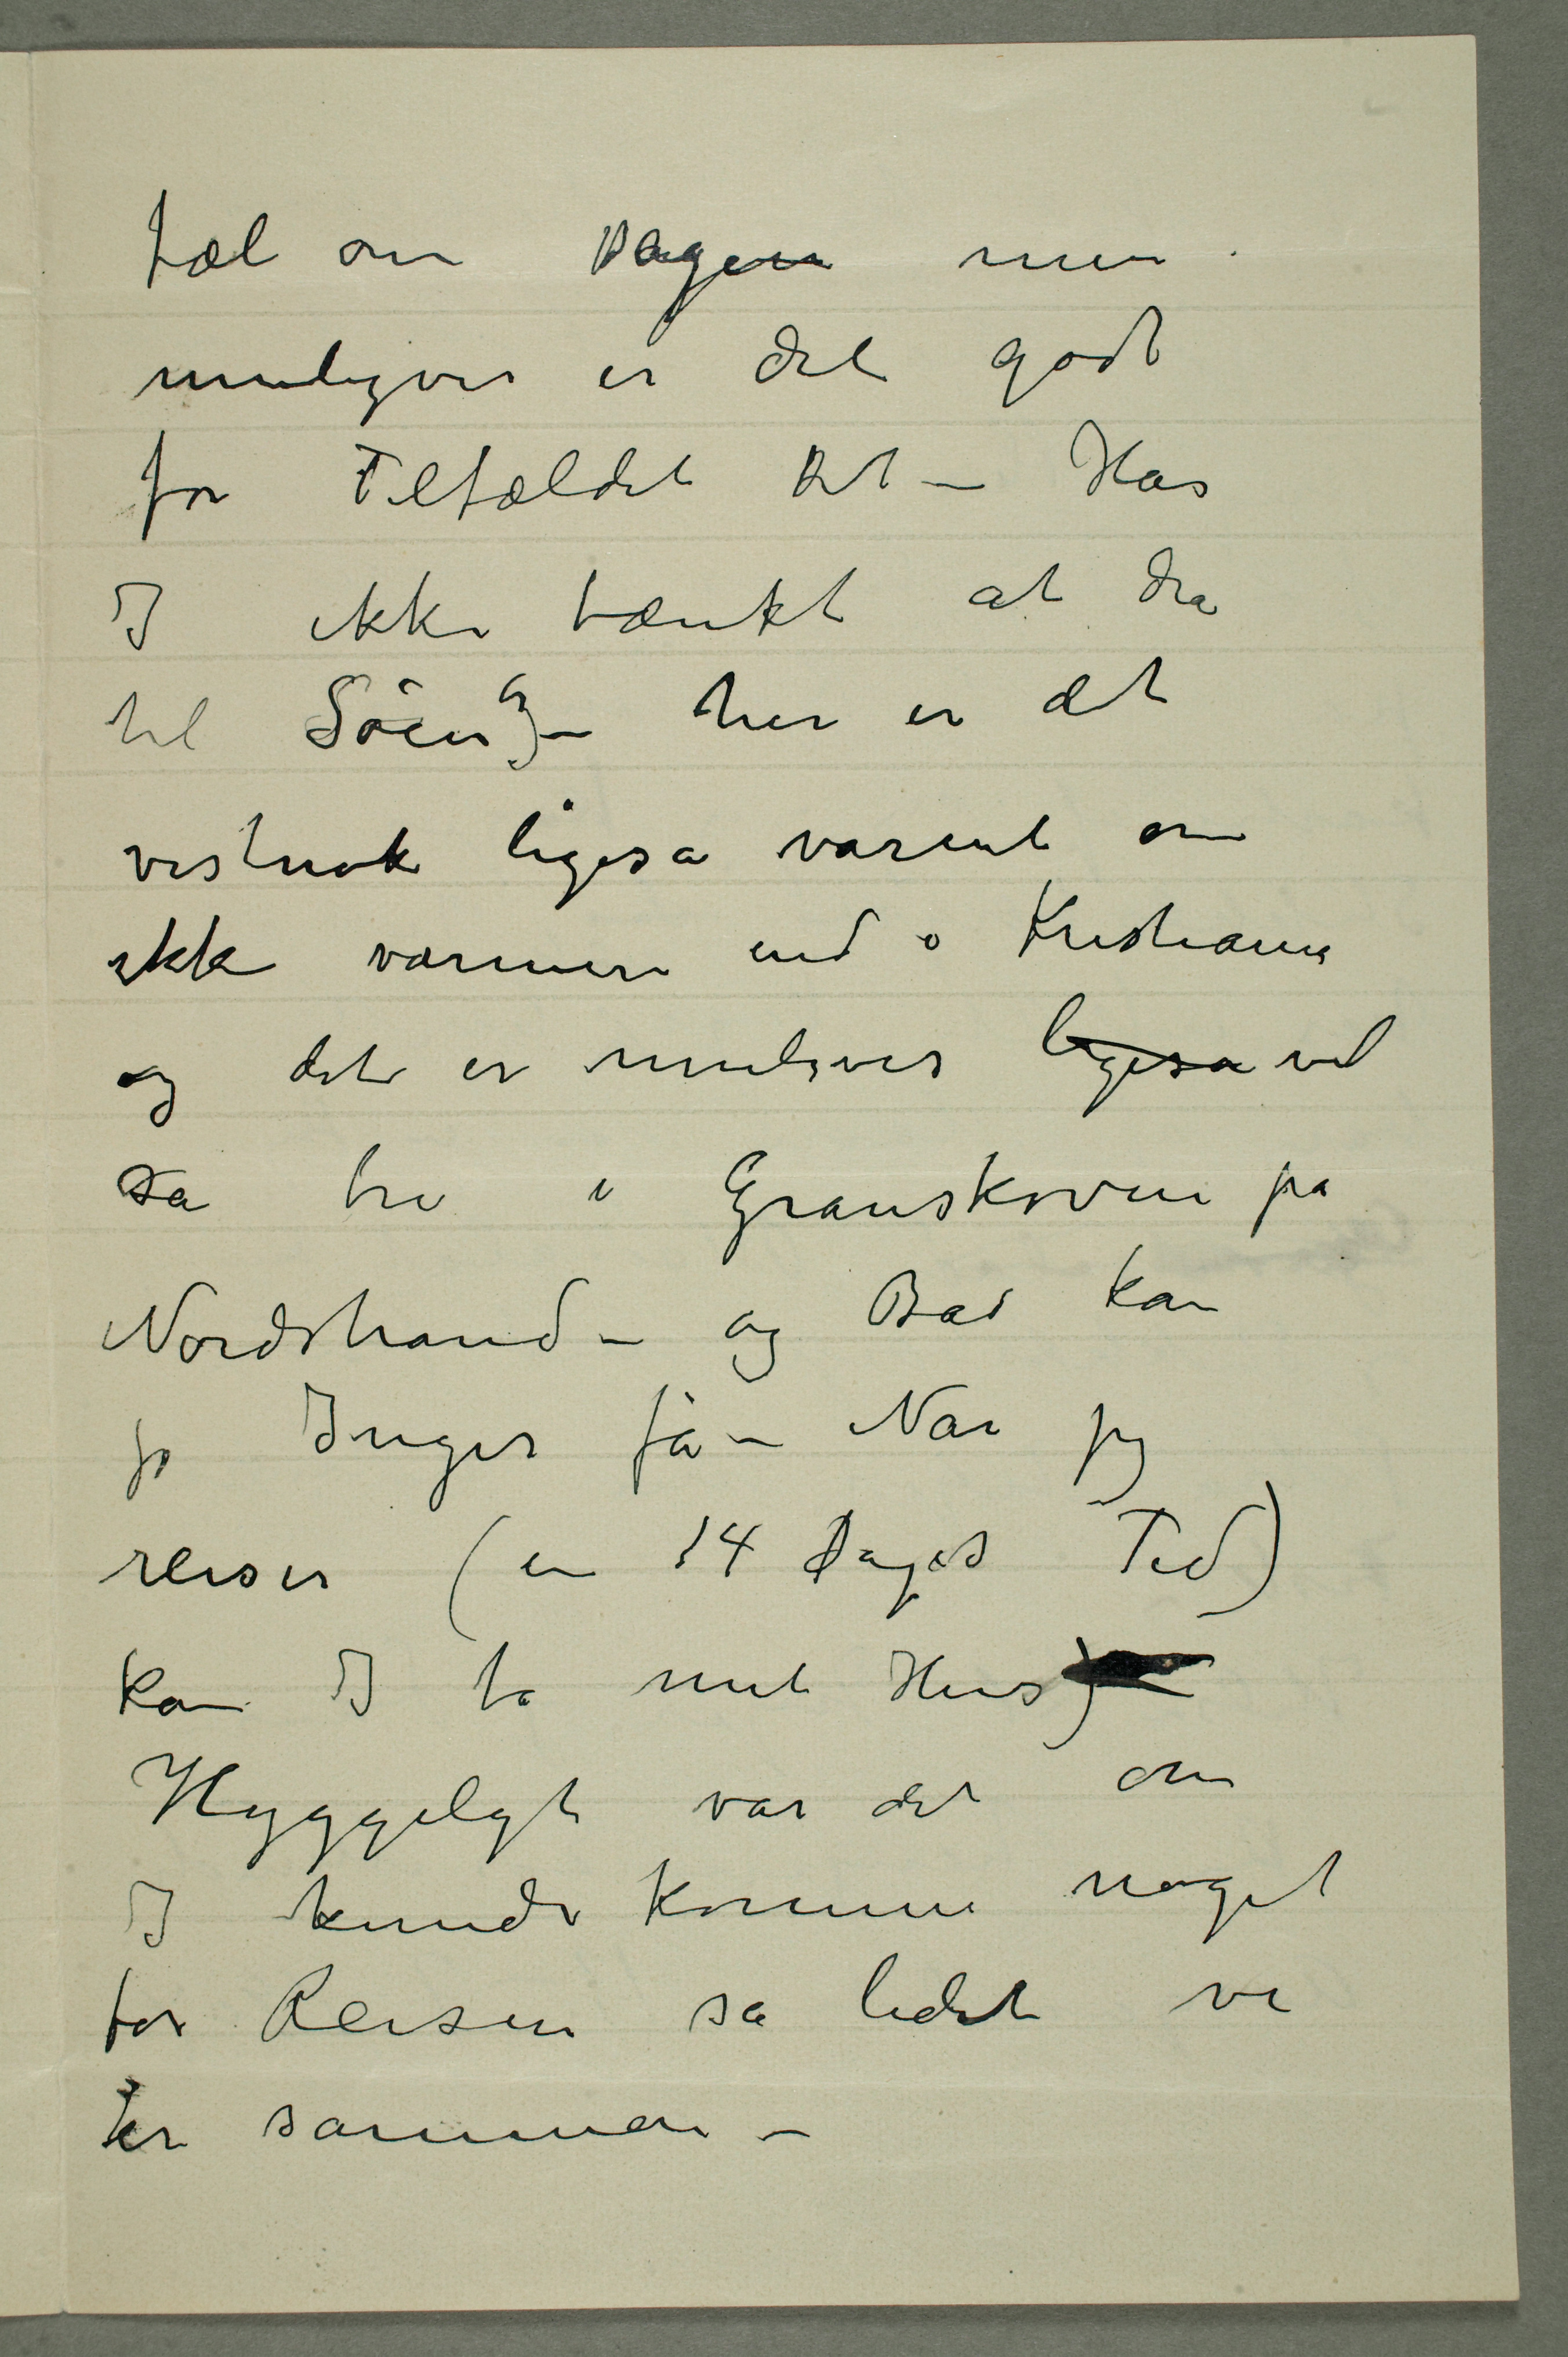 fæl om Dagen men
muligvis er det godt
for Tilfældet det – Har
I ikke tænkt at dra
til Söen? – her er det
vistnok ligeså varmt om
ikke varmere end i Kristiania
og det er muligvis ligesa vel
sa bra i Granskoven på
Nordstrand – og Bad kan
jo Inger få – Når jeg
reiser (en 14 Dages Tid)
kan I ta mit Hus)
Hyggeligt var det om
I kunde komme noget
før Reisen sa lidet vi
er sammen –